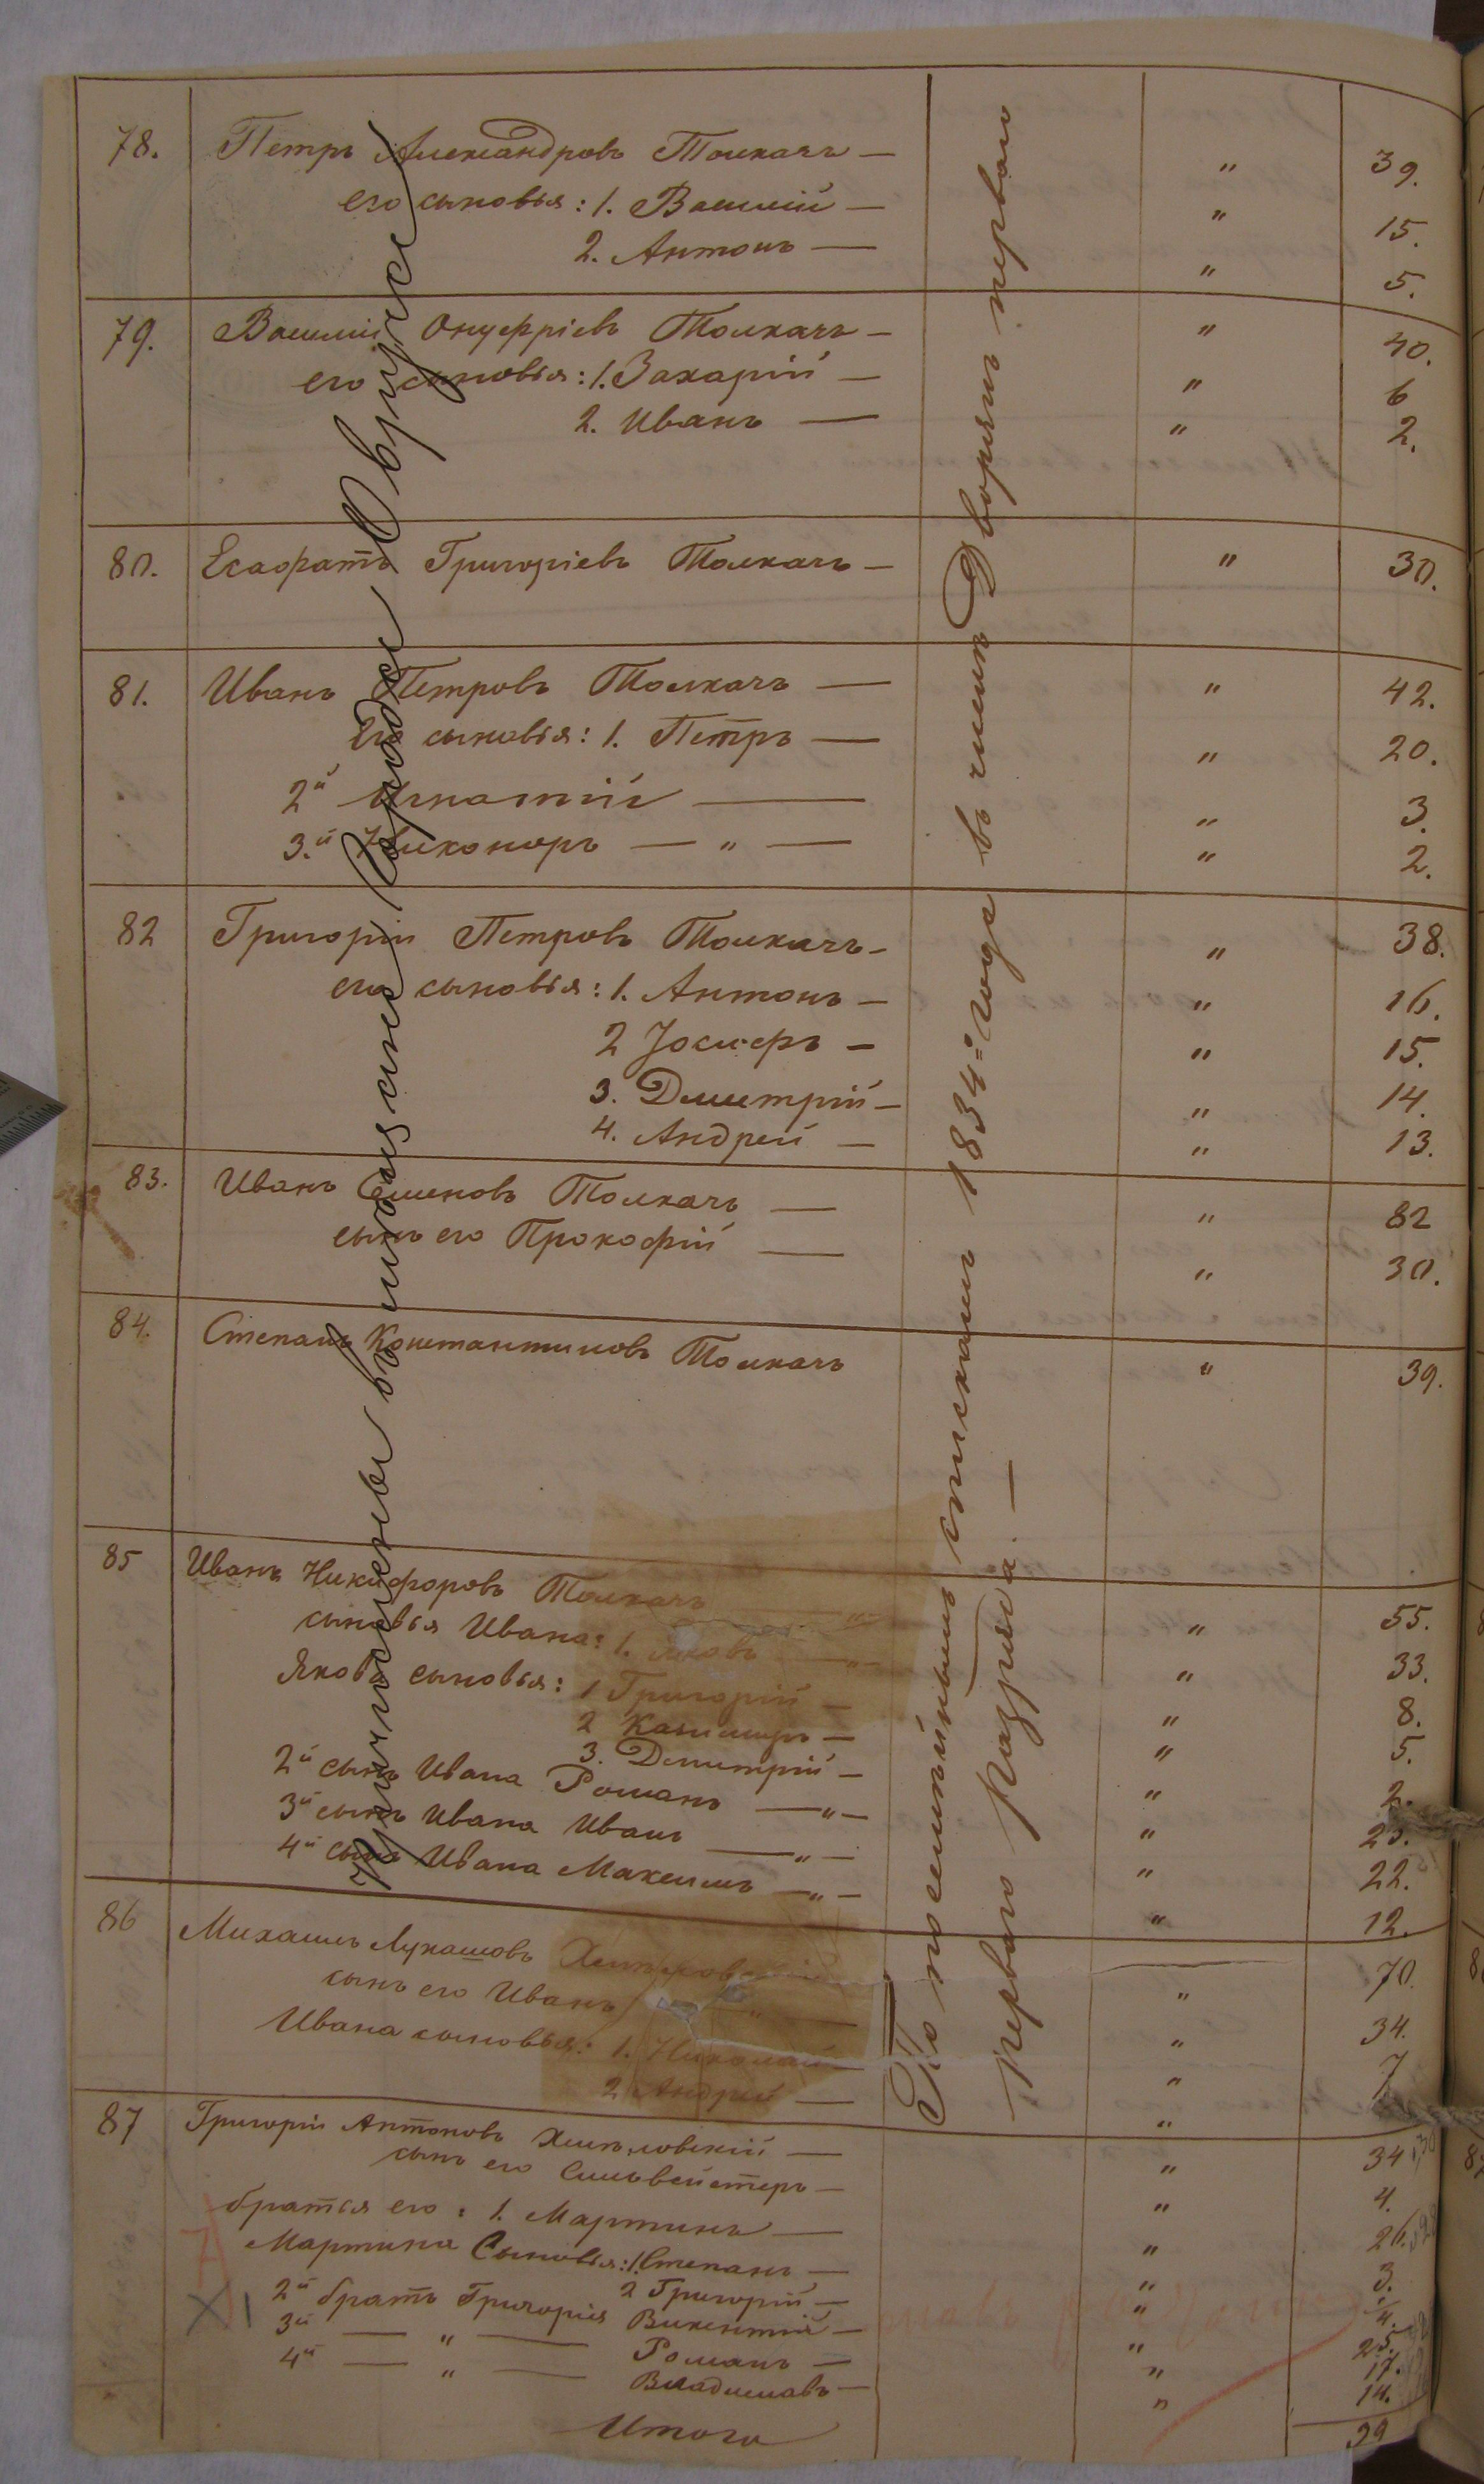 78. Петръ Александровъ Толкачъ — " 39.
его сыновья: 1. Василій — " 15.
2. Антонъ — " 5.
79. Василій Онуфріевъ Толкачъ — " 40.
его сыновья: 1. Захарій — " 6
2. Иванъ — " 2.
80. Есафатъ Григоріевъ Толкачъ — " 30.
81. Иванъ Петровъ Толкачъ — " 42.
Его сыновья: 1. Петръ — " 20.
2й Игнатій — " 3.
3.й Никоноръ — " — " 2.
82 Григорій Петровъ Толкачъ — " 38.
его сыновья: 1. Антонъ — " 16.
2 Іосифъ — " 15.
3. Дмитрій — " 14.
4. Андрей — " 13.
83. Иванъ Семеновъ Толкачъ — " 82
сынъ его Прокофій — " 30.
84. Степанъ Константиновъ Толкачъ " 39.
85 Иванъ Никифоровъ Толкачъ — " — " 55.
сыновья Ивана: 1. Яковъ — " — " 33.
Якова сыновья: 1 Григорій — " 8.
2 Казимиръ — " 5.
3. Дмитрій — " 2.
2й сынъ Ивана Романъ — " — " 23.
3й сынъ Ивана Иванъ — " — " 22.
4й сынъ Ивана Максимъ — " — " 12.
86 Михаилъ Лукашовъ " 70.
сынъ его Иванъ " — " 34.
Ивана сыновья: 1. Николай — " 7
2 Андрей — "
87 Григорій Антоновъ — " 34
сынъ его Сильвейстеръ — " 4.
братья его: 1. Мартинъ — " 26.
Мартина Сыновья: 1. Степанъ — " 3.
2 Григорій — "
2й братъ Григорія Викентій — " 25.
3й — " — Романъ — " 17.
4й — " — Владиславъ — " 14.
Итого 39
Причислены въ мещане Города Овруча
По посемейнымъ спискамъ 1834= года въ числѣ Дворянъ перваго
перваго разряда. —